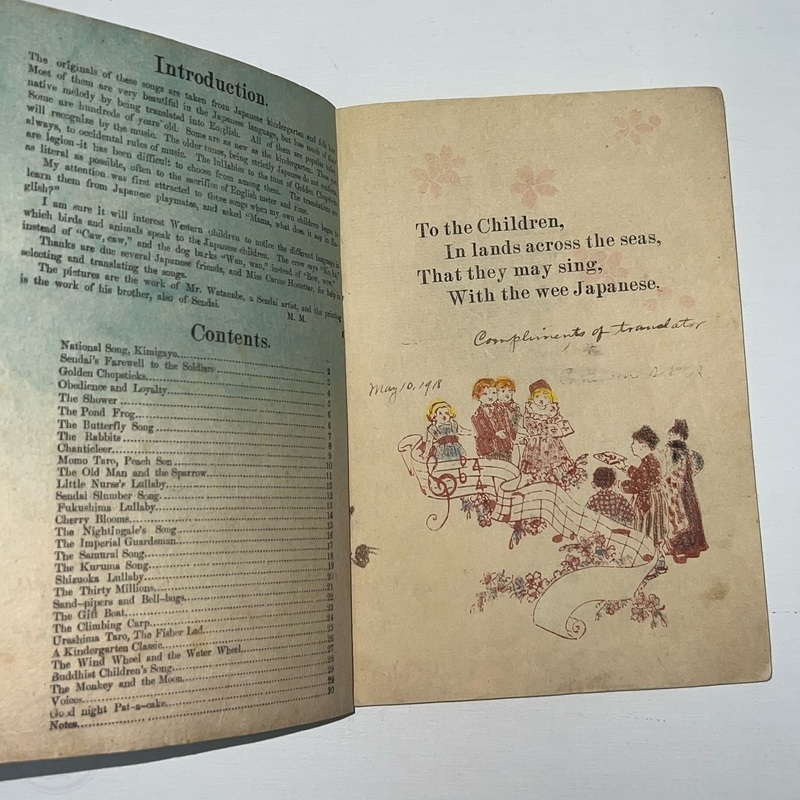 Introduction.
The originals of these songs are taken from Japanese kindergarten and folk
Most of them are very beautiful in the Japanese language, but lose much of their
native melody by being translated into English. All of them are popular today.
Some are hundreds of years old. Some are as new as the kindergarten. They you
will recognize by the music. The older tunes, being strictly Japanese do not conform,
always, to occidental rules of music. The lullabies to the tune of Golden Chopsticks
are legion-it has been difficult to choose from among them. The translations are
as literal as possible, often to the sacrifice of English meter and rime.
My attention was first attracted to these songs when my own children began to
learn them from Japanese playmates, and asked "Mama, what does it say in En-
glish?"
I am sure it will interest Western children to notice the different language in
which birds and animals speak to the Japanese children. The crow says "Ko, ko,"
instead of "Caw, caw," and the dog barks "Wan, wan," instead of "Bow, wow."
Thanks are due several Japanese friends, and Miss Carrie Hostetter, for help in
selecting and translating the songs.
The pictures are the work of Mr. Watanabe, a Sendai artist, and the printing
is the work of his brother, also of Sendai.
M. M.
Contents.
National Song, Kimigayo
Sendai's Farewell to the Soldiers 2
Golden Chopsticks 3
Obedience and Loyalty 4
The Shower 5
The Pond Frog 6
The Butterfly Song 6
The Rabbits 7
Chanticleer 8
Momo Taro, Peach Son 9
The Old Man and the Sparrow 10
Little Nurse's Lullaby 11
Sendai Slumber Song 12
Fukushima Lullaby 12
Cherry Blooms 13
The Nightingale's Song 14
The Imperial Guardsman 15
The Samurai Song 16
The Kuruma Song 17
Shizuoka Lullaby 18
The Thirty Millions 19
Sand-pipers and Bell-bugs 20
The Gift Boat 21
The Climbing Carp 22
Urashima Taro, The Fisher Lad 23
A Kindergarten Classic 24
The Wind Wheel and the Water Wheel 25
Buddhist Children's Song 27
The Monkey and the Moon 28
Voices 29
Good night Pat-a-cake 29
Notes 30
To the Children,
In lands across the seas,
That they may sing,
With the wee Japanese.
Compliments of translator
May 10, 1918